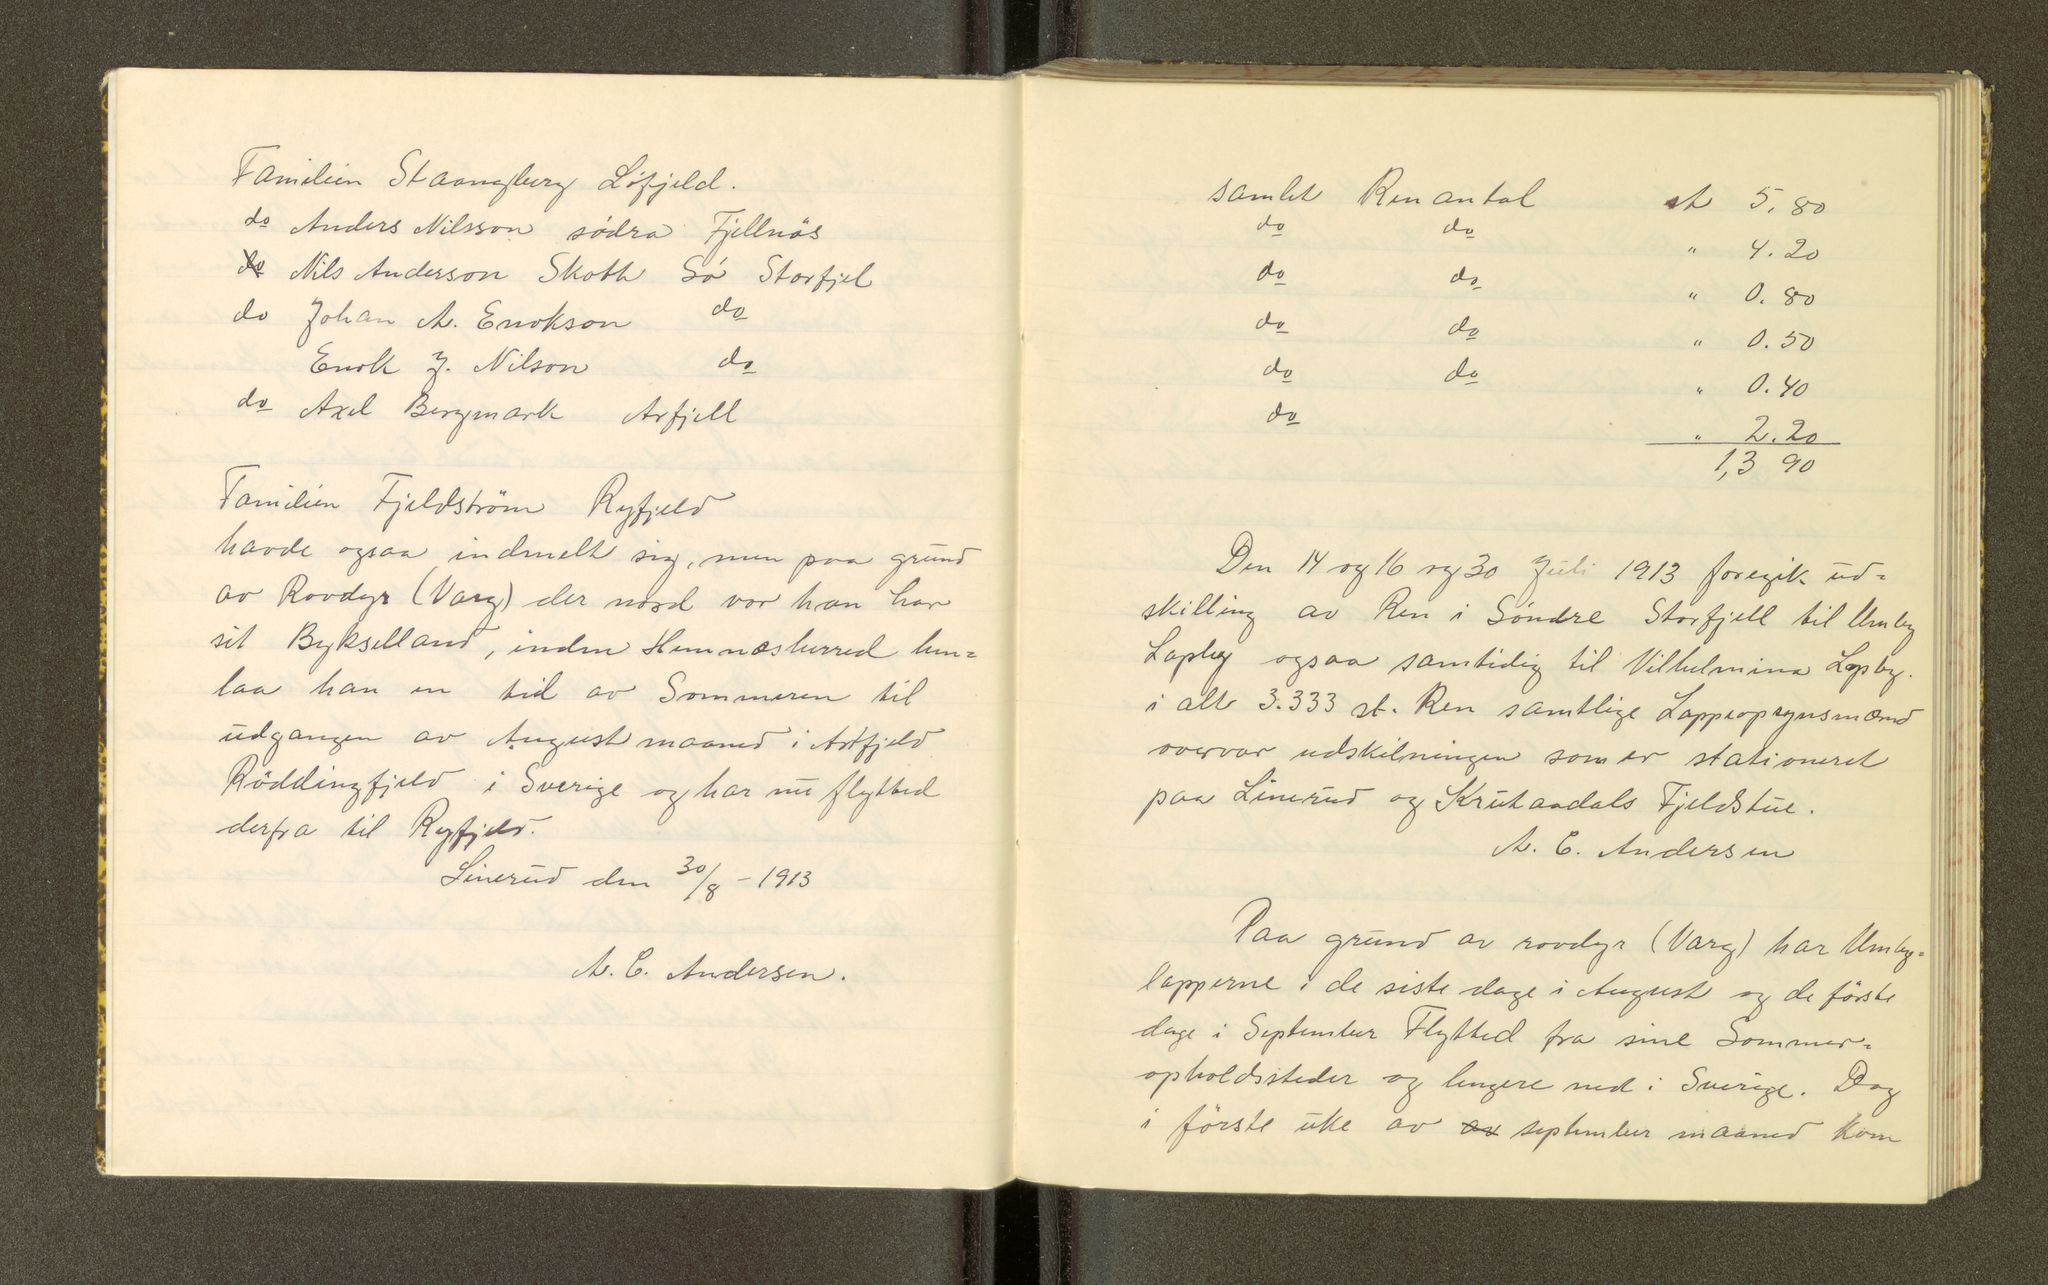 Familien Staangberg Löfjeld.
do Anders Nilsson södra Fjellnäs
do Nils Anderson Skoth Sö Storfjel
do Johan A. Enokson do
Enok J. Nilson do
do Axel Bergmark Arfjell
Familien Fjeldström Ryfjeld
havde ogsaa indmelt sig, men paa grund
av Rovdyr (Varg) der nord vor han har
sit Bykselland, inden Hemnæsherred hen-
laa han en tid av Sommeren til
udgangen av August maaned i Artfjeld
Röddingfjeld i Sverige og har nu flytted
derfra til Ryfjeld.
Linerud den 30/8 - 1913
A. C. Andersen.
samlet Ren antal st 5,80
do do " 4.20
do do " 0.80
do do " 0.50
do do " 0.40
do " 2.20
1,3 90
Den 14 og 16 og 30 Juli 1913 foregik ud-
skilling av Ren i Söndre Storfjell til Umby
Lapby ogsaa samtidig til Vilhelmina Lapby.
i alt 3.333 st. Ren samtlige Lappeopsynsmænd
overvar udskilningen som er stationeret
paa Linerud og Krutaadals Fjeldstue.
A. C. Andersen
Paa grund av rovdyr (Varg) har Umby-
lapperne i de siste dage i August og de förste
dage i September Flytted fra sine Sommer-
opholdssteder og lengere ned i Sverige. Dog
i förste uke av av september maaned kom